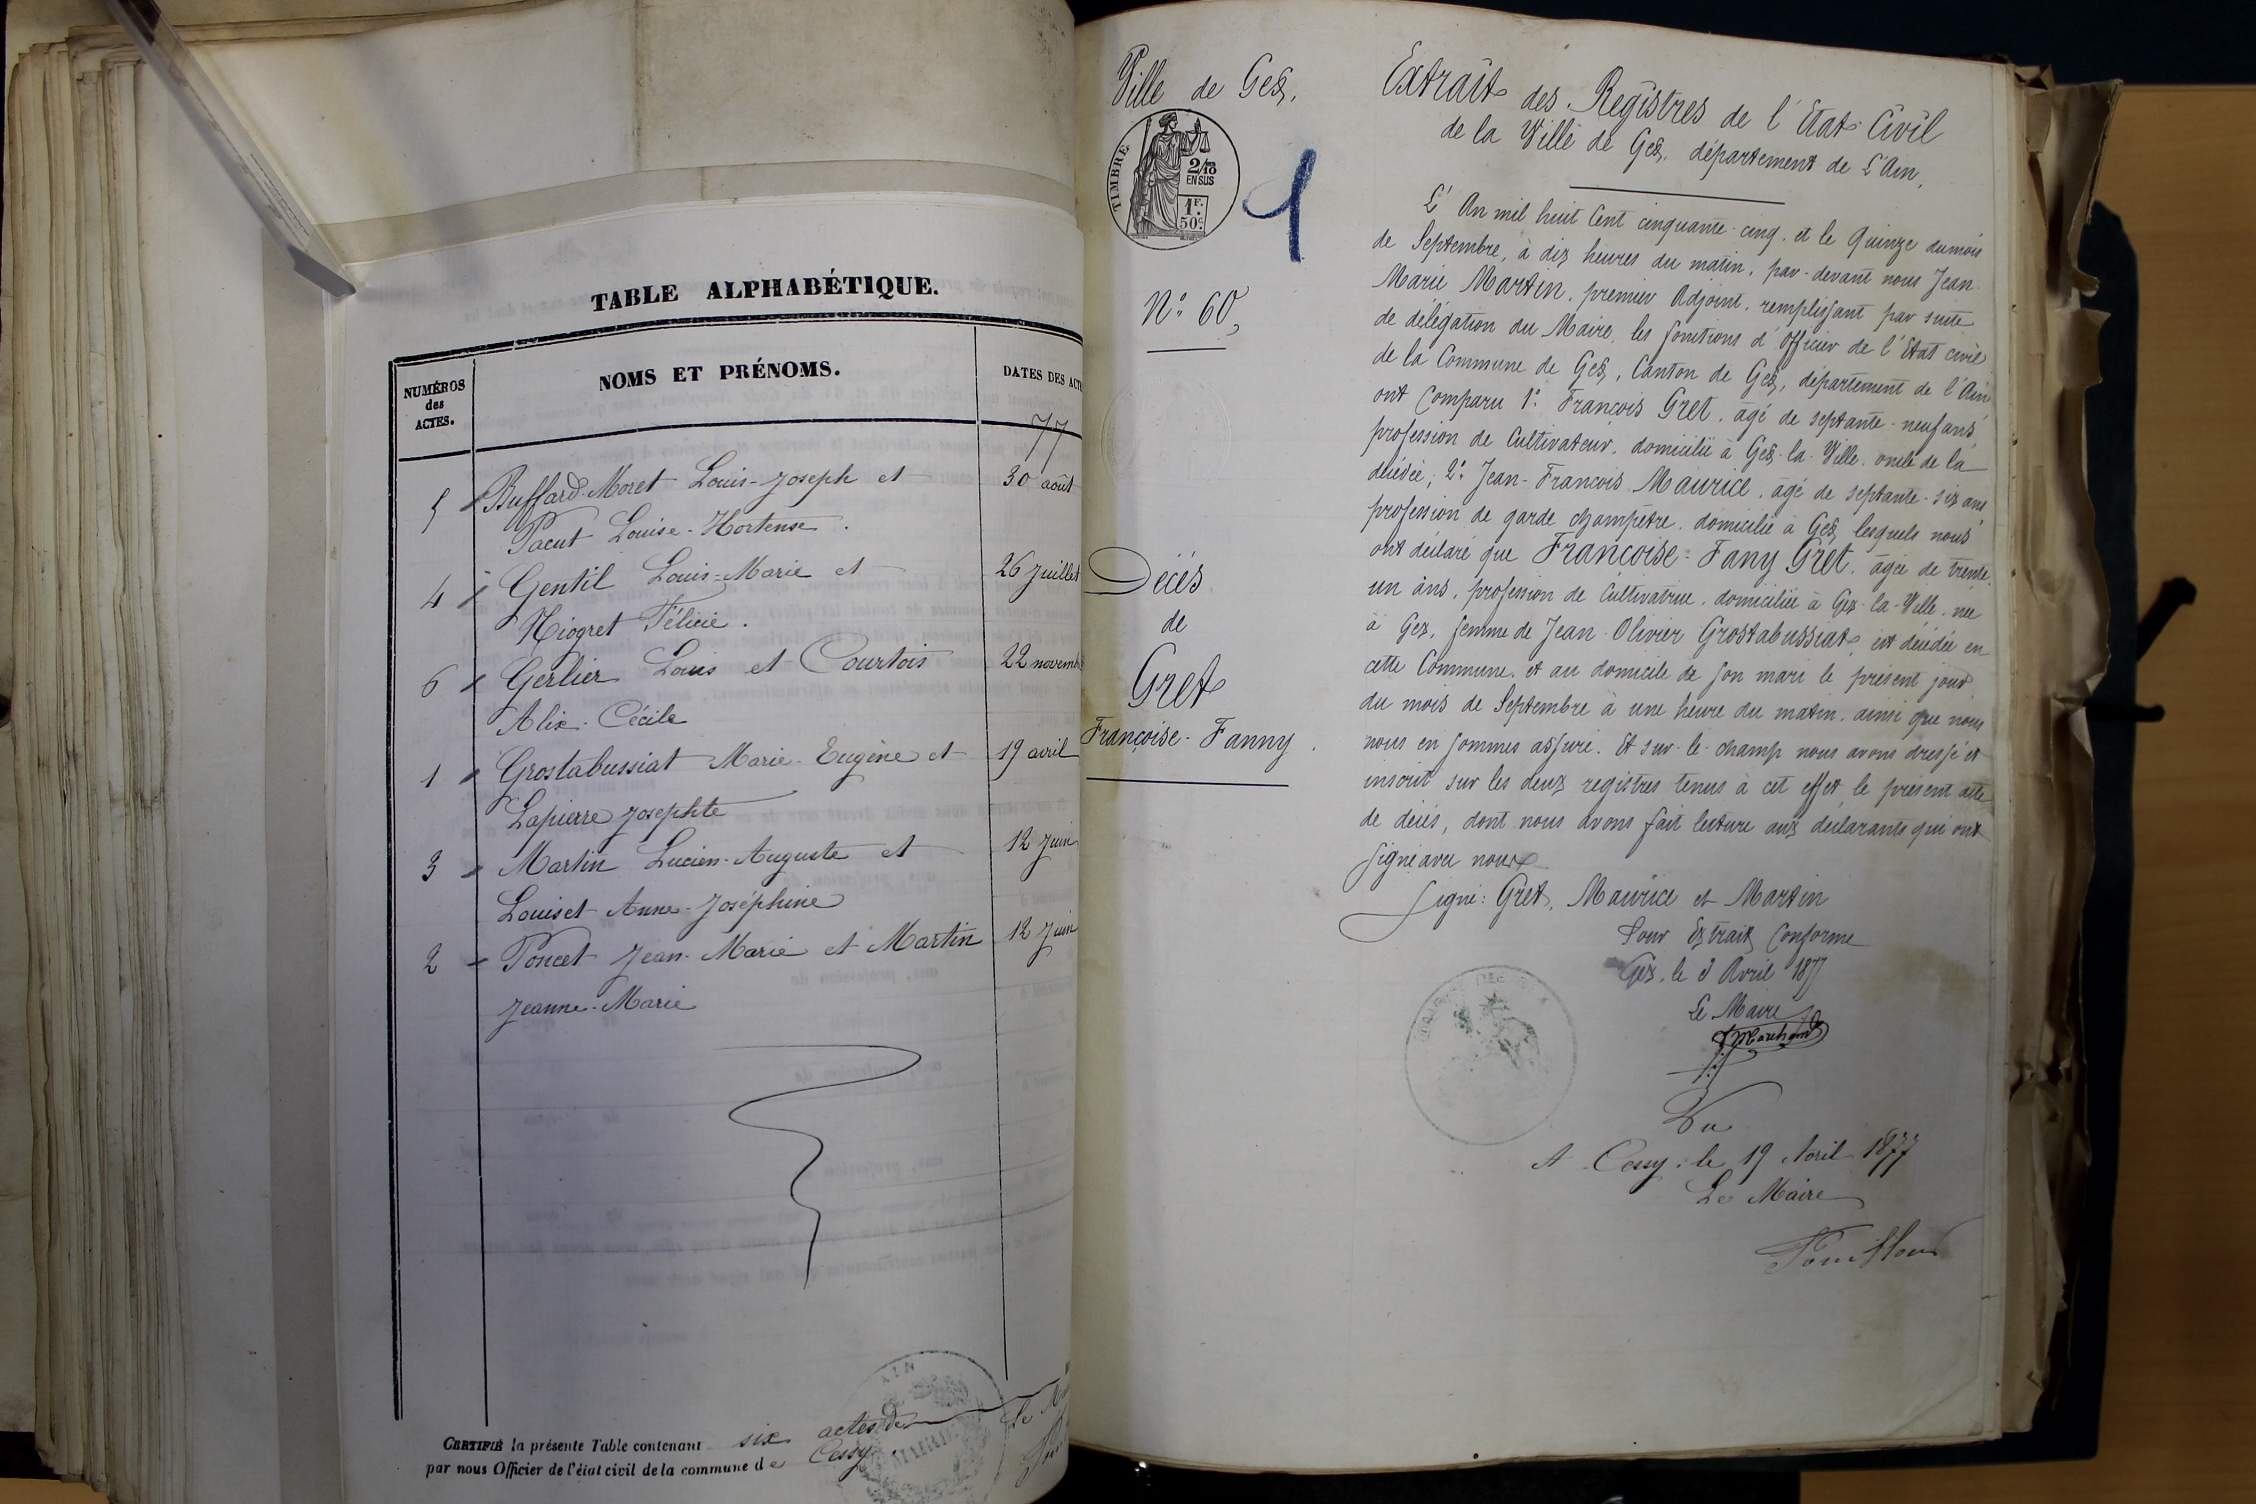 TABLE ALPHABÉTIQUE.
NUMÉROS
des
ACTES.
NOMS ET PRÉNOMS.
DATES DES ACT
77
5 Buffard-Moret Louis-Joseph et 30 août
Pacut Louise-Hortense.
4 Gentil Louis-Marie et 26 Juillet
Niogret Félicie.
6 Gerlier Louis et Courtois 22 novemb
Alix-Cécile
1 Grostabussiat Marie-Eugène et 19 avril
Lapierre Josephte
3 Martin Lucien-Auguste et 12 Juin
Louiset Anne-Joséphine
2 Poncet Jean-Marie et Martin 12 Juin
Jeanne-Marie
CERTIFIÉ la présente Table contenant six actes de
par nous Officier de l'état civil de la commune de Cessy.
AIN
MAIRIE
Ville de Gex,
TIMBRE
2/10
EN SUS
1F.
50c.
1
N° 60,
Décès
de
Gret
Françoise-Fanny.
Extrait des Registres de l'Etat Civil
de la Ville de Gex, département de L'Ain,
L'An mil huit Cent cinquante-cinq, et le Quinze du mois
de Septembre, à dix heures du matin, par-devant nous Jean
Marie Martin, premier Adjoint, remplissant par suite
de délégation du Maire, les fonctions d'officier de l'Etat civil
de la Commune de Gex, Canton de Gex, département de l'Ain
ont Comparu 1° François Gret, âgé de septante-neuf ans,
profession de Cultivateur, domicilié à Gex-la-Ville, oncle de la
décédée; 2° Jean-François Maurice, âgé de septante-six ans
profession de garde champêtre, domicilié à Gex, lesquels nous
ont déclaré que Françoise-Fany Gret, âgée de trente
un ans, profession de Cultivatrice, domiciliée à Gex-la-Ville, née
à Gex, femme de Jean-Olivier Grostabussiat, est décédée en
cette Commune, et au domicile de son mari le présent jour
du mois de Septembre à une heure du matin, ainsi que nous
nous en sommes assuré. Et sur-le-champ nous avons dressé et
inscrit sur les deux registres tenus à cet effet le présent acte
de décès, dont nous avons fait lecture aux déclarants qui ont
signé avec nous
Signé: Gret, Maurice et Martin
Pour Extrait Conforme
Gex, le 3 Avril 1877
Le Maire
Vu
A Cessy, le 19 Avril 1877
Le Maire